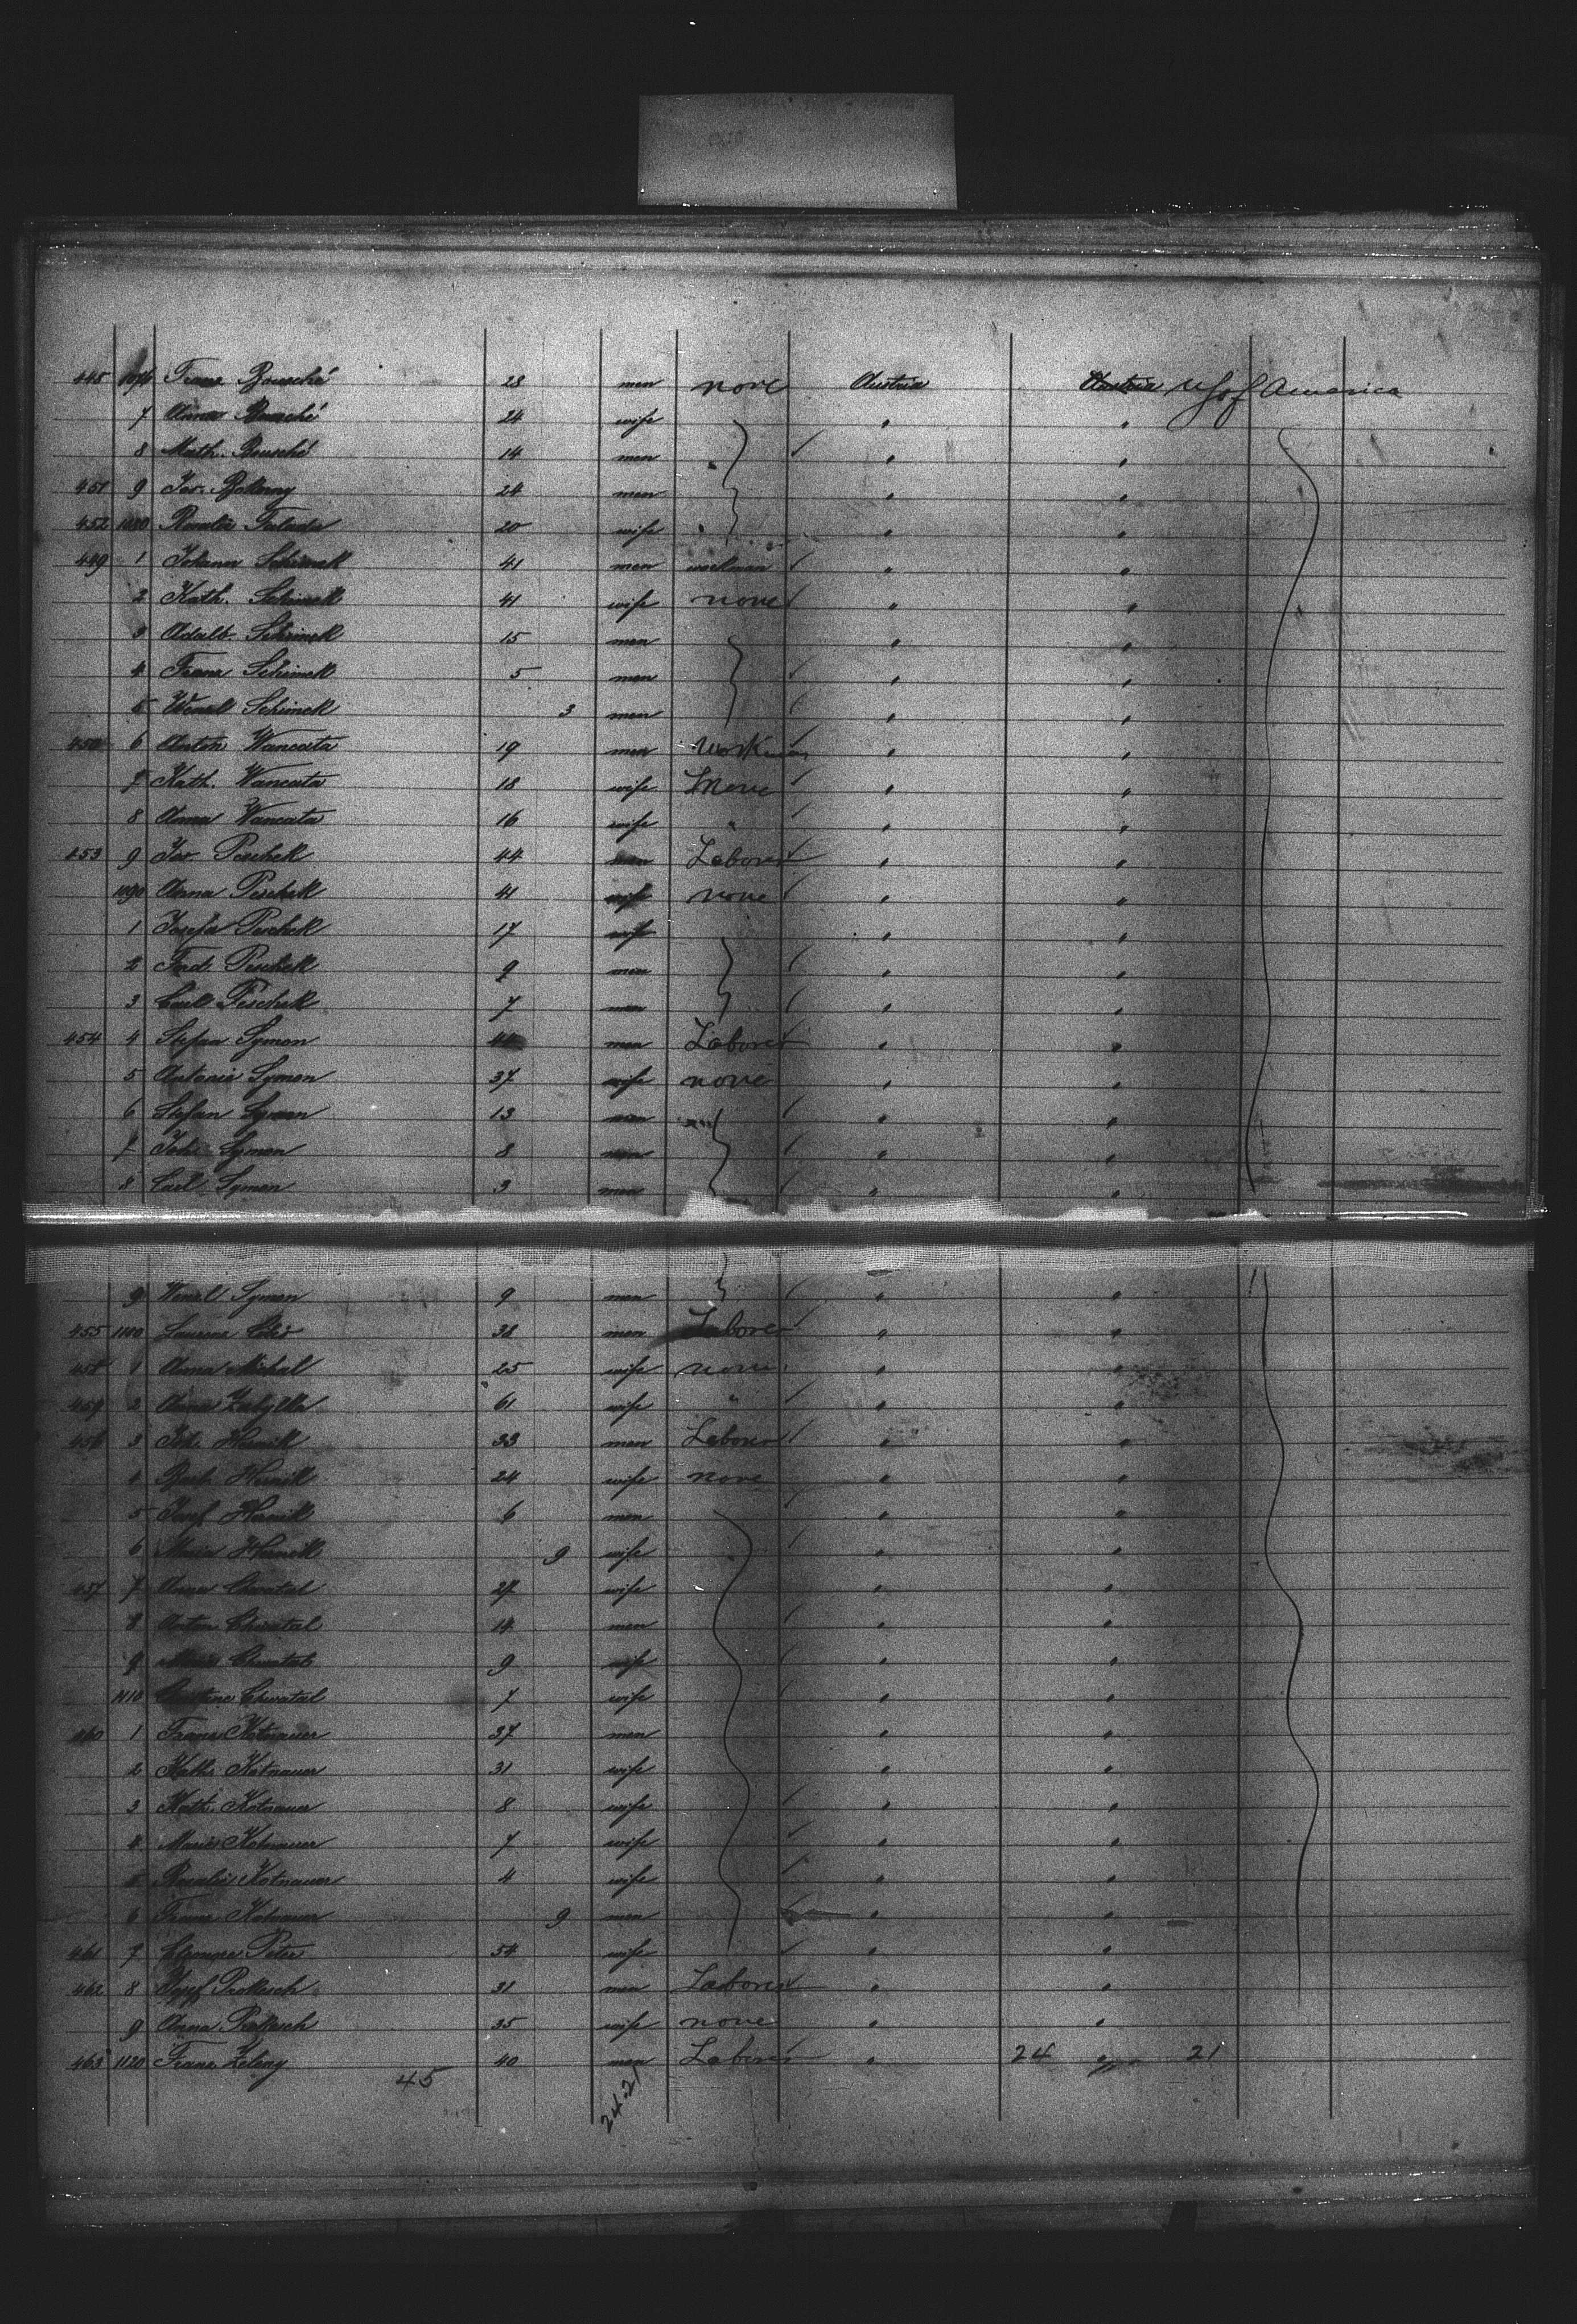 448 1076 Franz Bousché 28 men none Austria Austria U S of America
7 Anna Bousché 24 wife " "
8 Math. Bousché 14 men " "
451 9 Jos. Pokorny 24 men " "
452 1080 Rosalie 20 wife " "
449 1 Johann Schimek 41 men workman " "
2 Kath. Schimek 41 wife none " "
3 Adalb. Schimek 15 men " "
4 Franz Schimek 5 men " "
5 Wenzl Schimek 3 men " "
450 6 Anton Wancata 19 men Workman " "
7 Kath. Wancata 18 wife None " "
8 Anna Wancata 16 wife " " "
453 9 Jos Peschek 44 men Laborer " "
1090 Anna Peschek 41 wife none " "
1 Josefa Peschek 17 wife " "
2 Ferd. Peschek 9 men " "
3 Carl Peschek 7 men " "
454 4 Stefan Symon men Laborer " "
5 Antonie Symon 37 wife none " "
6 Stefan Symon 13 men " "
7 Joh. Symon 8 men " "
8 Carl Symon 3 men " "
9 Wenzl Symon 9 men " "
455 1100 Laurenz 38 men Laborer " "
458 1 Anna Michal 25 wife none " "
459 2 Anna 61 wife " " "
456 3 Joh. Hernik 33 men Laborer " "
4 Barb. Hernik 24 wife none " "
5 Josef Hernik 6 men " "
6 Maria Hernik 9 wife " "
457 7 Anna Chwatal 27 wife " "
8 Anton Chwatal 14 men " "
9 Marie Chwatal 9 wife " "
1110 Christine Chwatal 7 wife " "
460 1 Franz Kotnauer 37 men " "
2 Kath. Kotnauer 31 wife " "
3 Kath. Kotnauer 8 wife " "
4 Marie Kotnauer 7 wife " "
5 Rosalie Kotnauer 4 wife " "
6 Franz Kotnauer 9 men " "
461 7 Peter 54 wife " "
462 8 Josef Prokesch 31 men Laborer " "
9 Anna Prokesch 35 wife none " "
463 1120 Franz Zeleny 40 men Laborer " 24 " 21
45
24.21